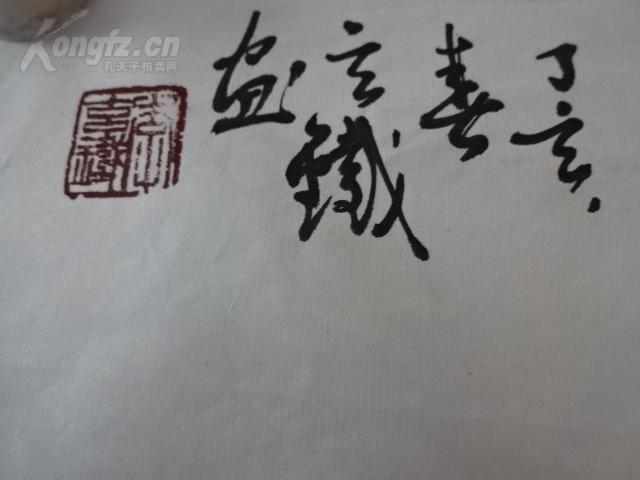 Kongfz.cn
孔夫子拍卖网
丁亥
春
言鐵
画